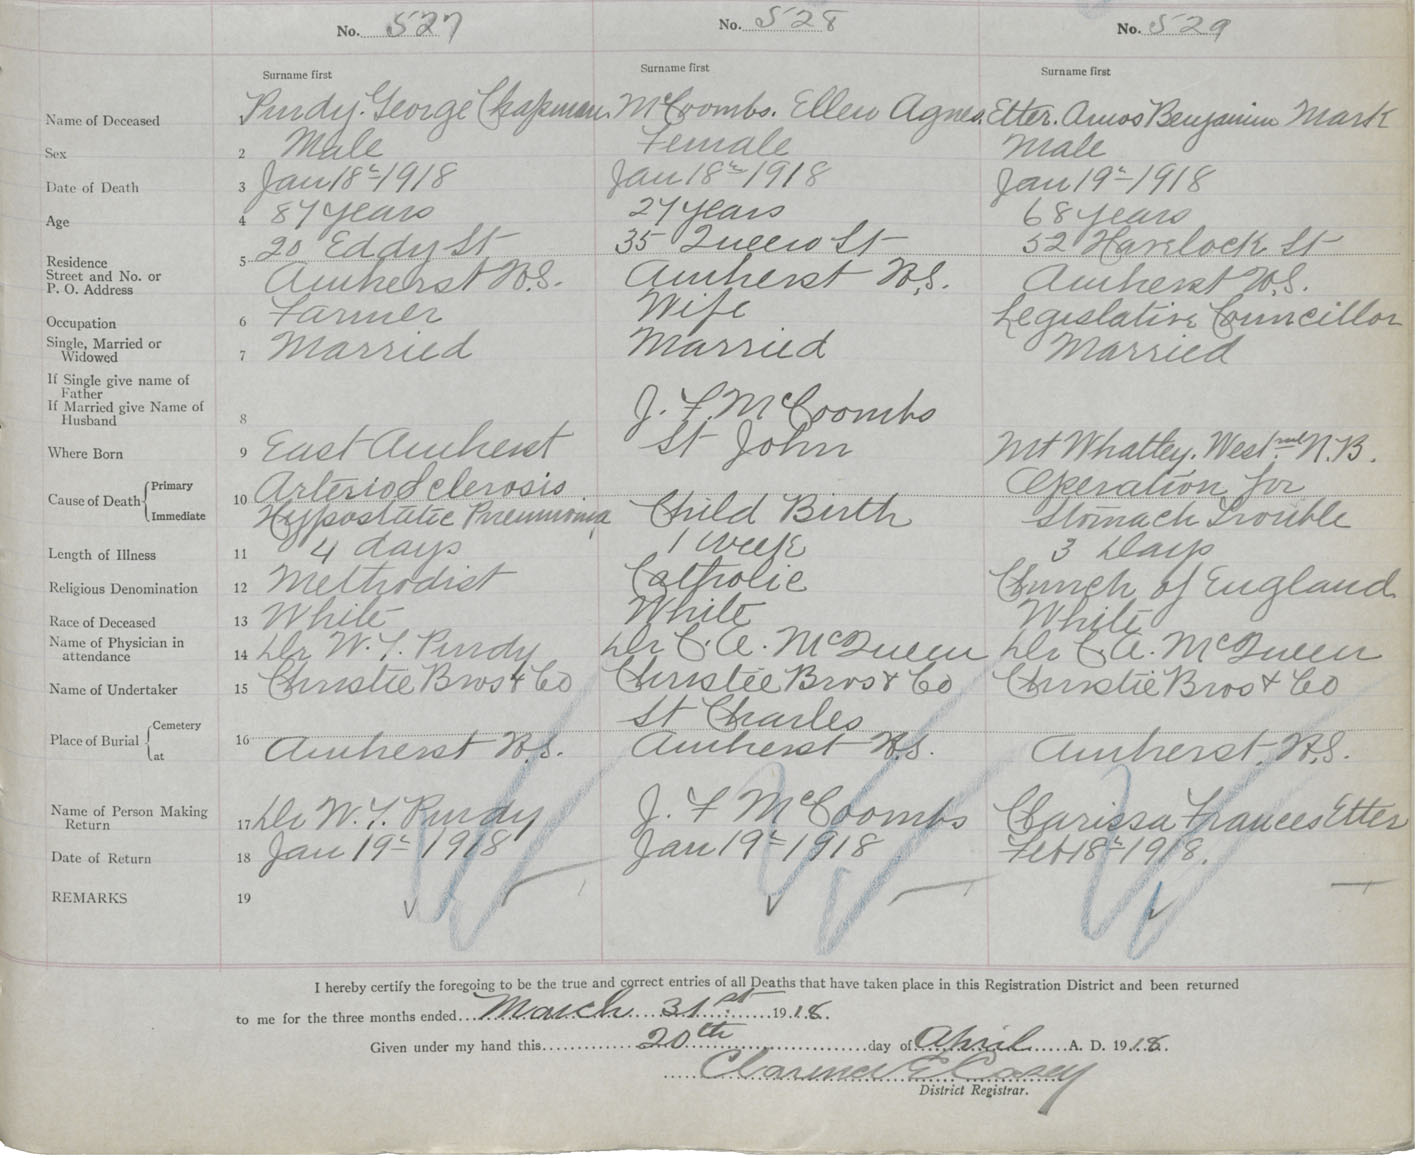 No. 527 No. 528 No. 529
Surname first Surname first Surname first
Name of Deceased 1 Purdy. George Chapman. McCoombs. Ellen Agnes. Etter. Amos Benjamin Mark
Sex 2 Male Female Male
Date of Death 3 Jan 18th 1918 Jan 18th 1918 Jan 19th 1918
Age 4 87 years 27 years 68 years
Residence Street and No. or P. O. Address 5 20 Eddy St 35 Queen St 52 Havelock St
Amherst N.S. Amherst N.S. Amherst N.S.
Occupation 6 Farmer Wife Legislative Councillor
Single, Married or Widowed 7 Married Married Married
If Single give name of Father
If Married give Name of Husband 8 J. F. McCoombs
Where Born 9 East Amherst St John Mt Whatley. West.md N.B.
Cause of Death { Primary 10 Arterio Sclerosis Operation for
Immediate Hypostatic Pneumonia Child Birth Stomach Trouble
Length of Illness 11 4 days 1 week 3 Days
Religious Denomination 12 Methodist Catholic Church of England
Race of Deceased 13 White White White
Name of Physician in attendance 14 Dr W. T. Purdy Dr C. A. McQueen Dr C. A. McQueen
Name of Undertaker 15 Christie Bros & Co Christie Bros & Co Christie Bros & Co
Place of Burial { Cemetery 16 St Charles
at Amherst N.S. Amherst N.S. Amherst. N.S.
Name of Person Making Return 17 Dr W. T. Purdy J. F McCoombs Clarissa Frances Etter
Date of Return 18 Jan 19th 1918 Jan 19th 1918 Feb 18th 1918.
REMARKS 19
I hereby certify the foregoing to be the true and correct entries of all Deaths that have taken place in this Registration District and been returned
to me for the three months ended March 31st 1918.
Given under my hand this 20th day of April A. D. 1918.
Clarence E Casey
District Registrar.